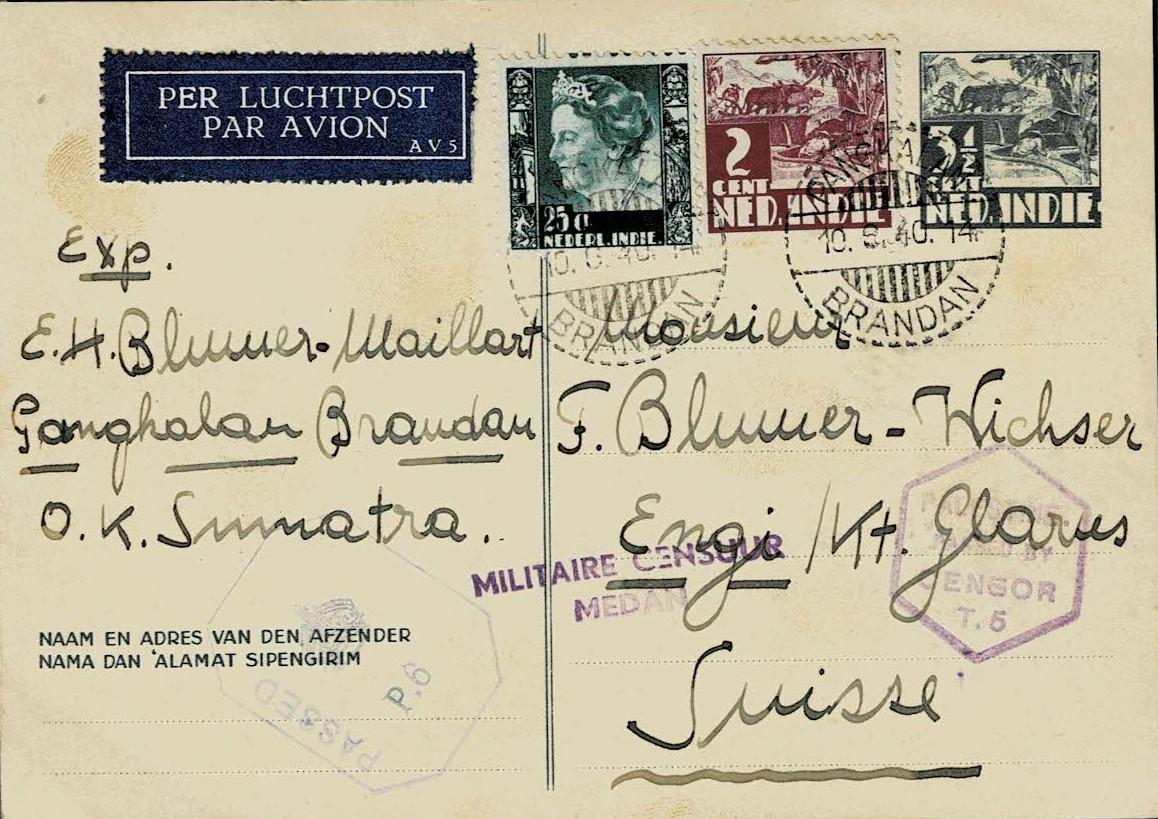 PER LUCHTPOST
PAR AVION
A V 5
25 c.
NEDERL. INDIE.
2
CENT
NED. INDIE
3½
CENT
NED. INDIE
BRANDAN
10. 8. 40. 14
BRANDAN
Exp.
E. H. Blumer-Maillart
Panghalan Brandan
O. K. Sumatra.
Monsieur
F. Blumer-Wichser
Engi /Kt. Glarus
Suisse
MILITAIRE CENSUUR
MEDAN
PASSED BY
CENSOR
T. 5
NAAM EN ADRES VAN DEN AFZENDER
NAMA DAN 'ALAMAT SIPENGIRIM
PASSED
P. 6